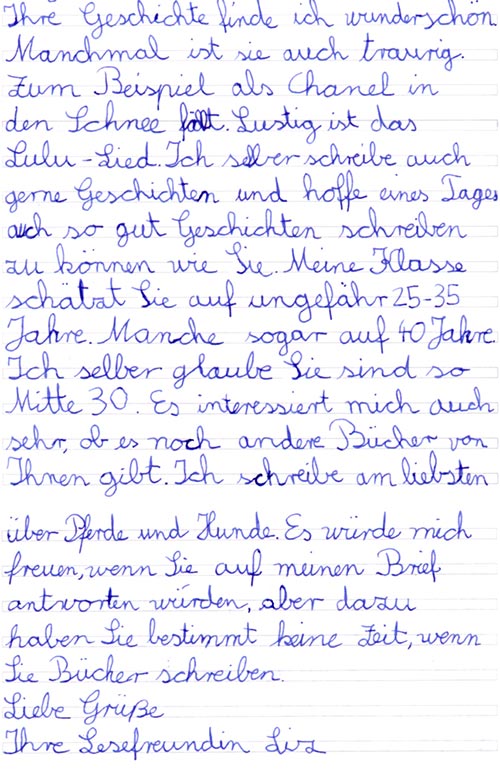 Ihre Geschichte finde ich wunderschön.
Manchmal ist sie auch traurig.
Zum Beispiel als Chanel in
den Schnee fällt. Lustig ist das
Lulu-Lied. Ich selber schreibe auch
gerne Geschichten und hoffe eines Tages
auch so gut Geschichten schreiben
zu können wie Sie. Meine Klasse
schätzt Sie auf ungefähr 25-35
Jahre. Manche sogar auf 40 Jahre.
Ich selber glaube Sie sind so
Mitte 30. Es interessiert mich auch
sehr, ob es noch andere Bücher von
Ihnen gibt. Ich schreibe am liebsten
über Pferde und Hunde. Es würde mich
freuen, wenn Sie auf meinen Brief
antworten würden, aber dazu
haben Sie bestimmt keine Zeit, wenn
Sie Bücher schreiben.
Liebe Grüße
Ihre Lesefreundin Liz